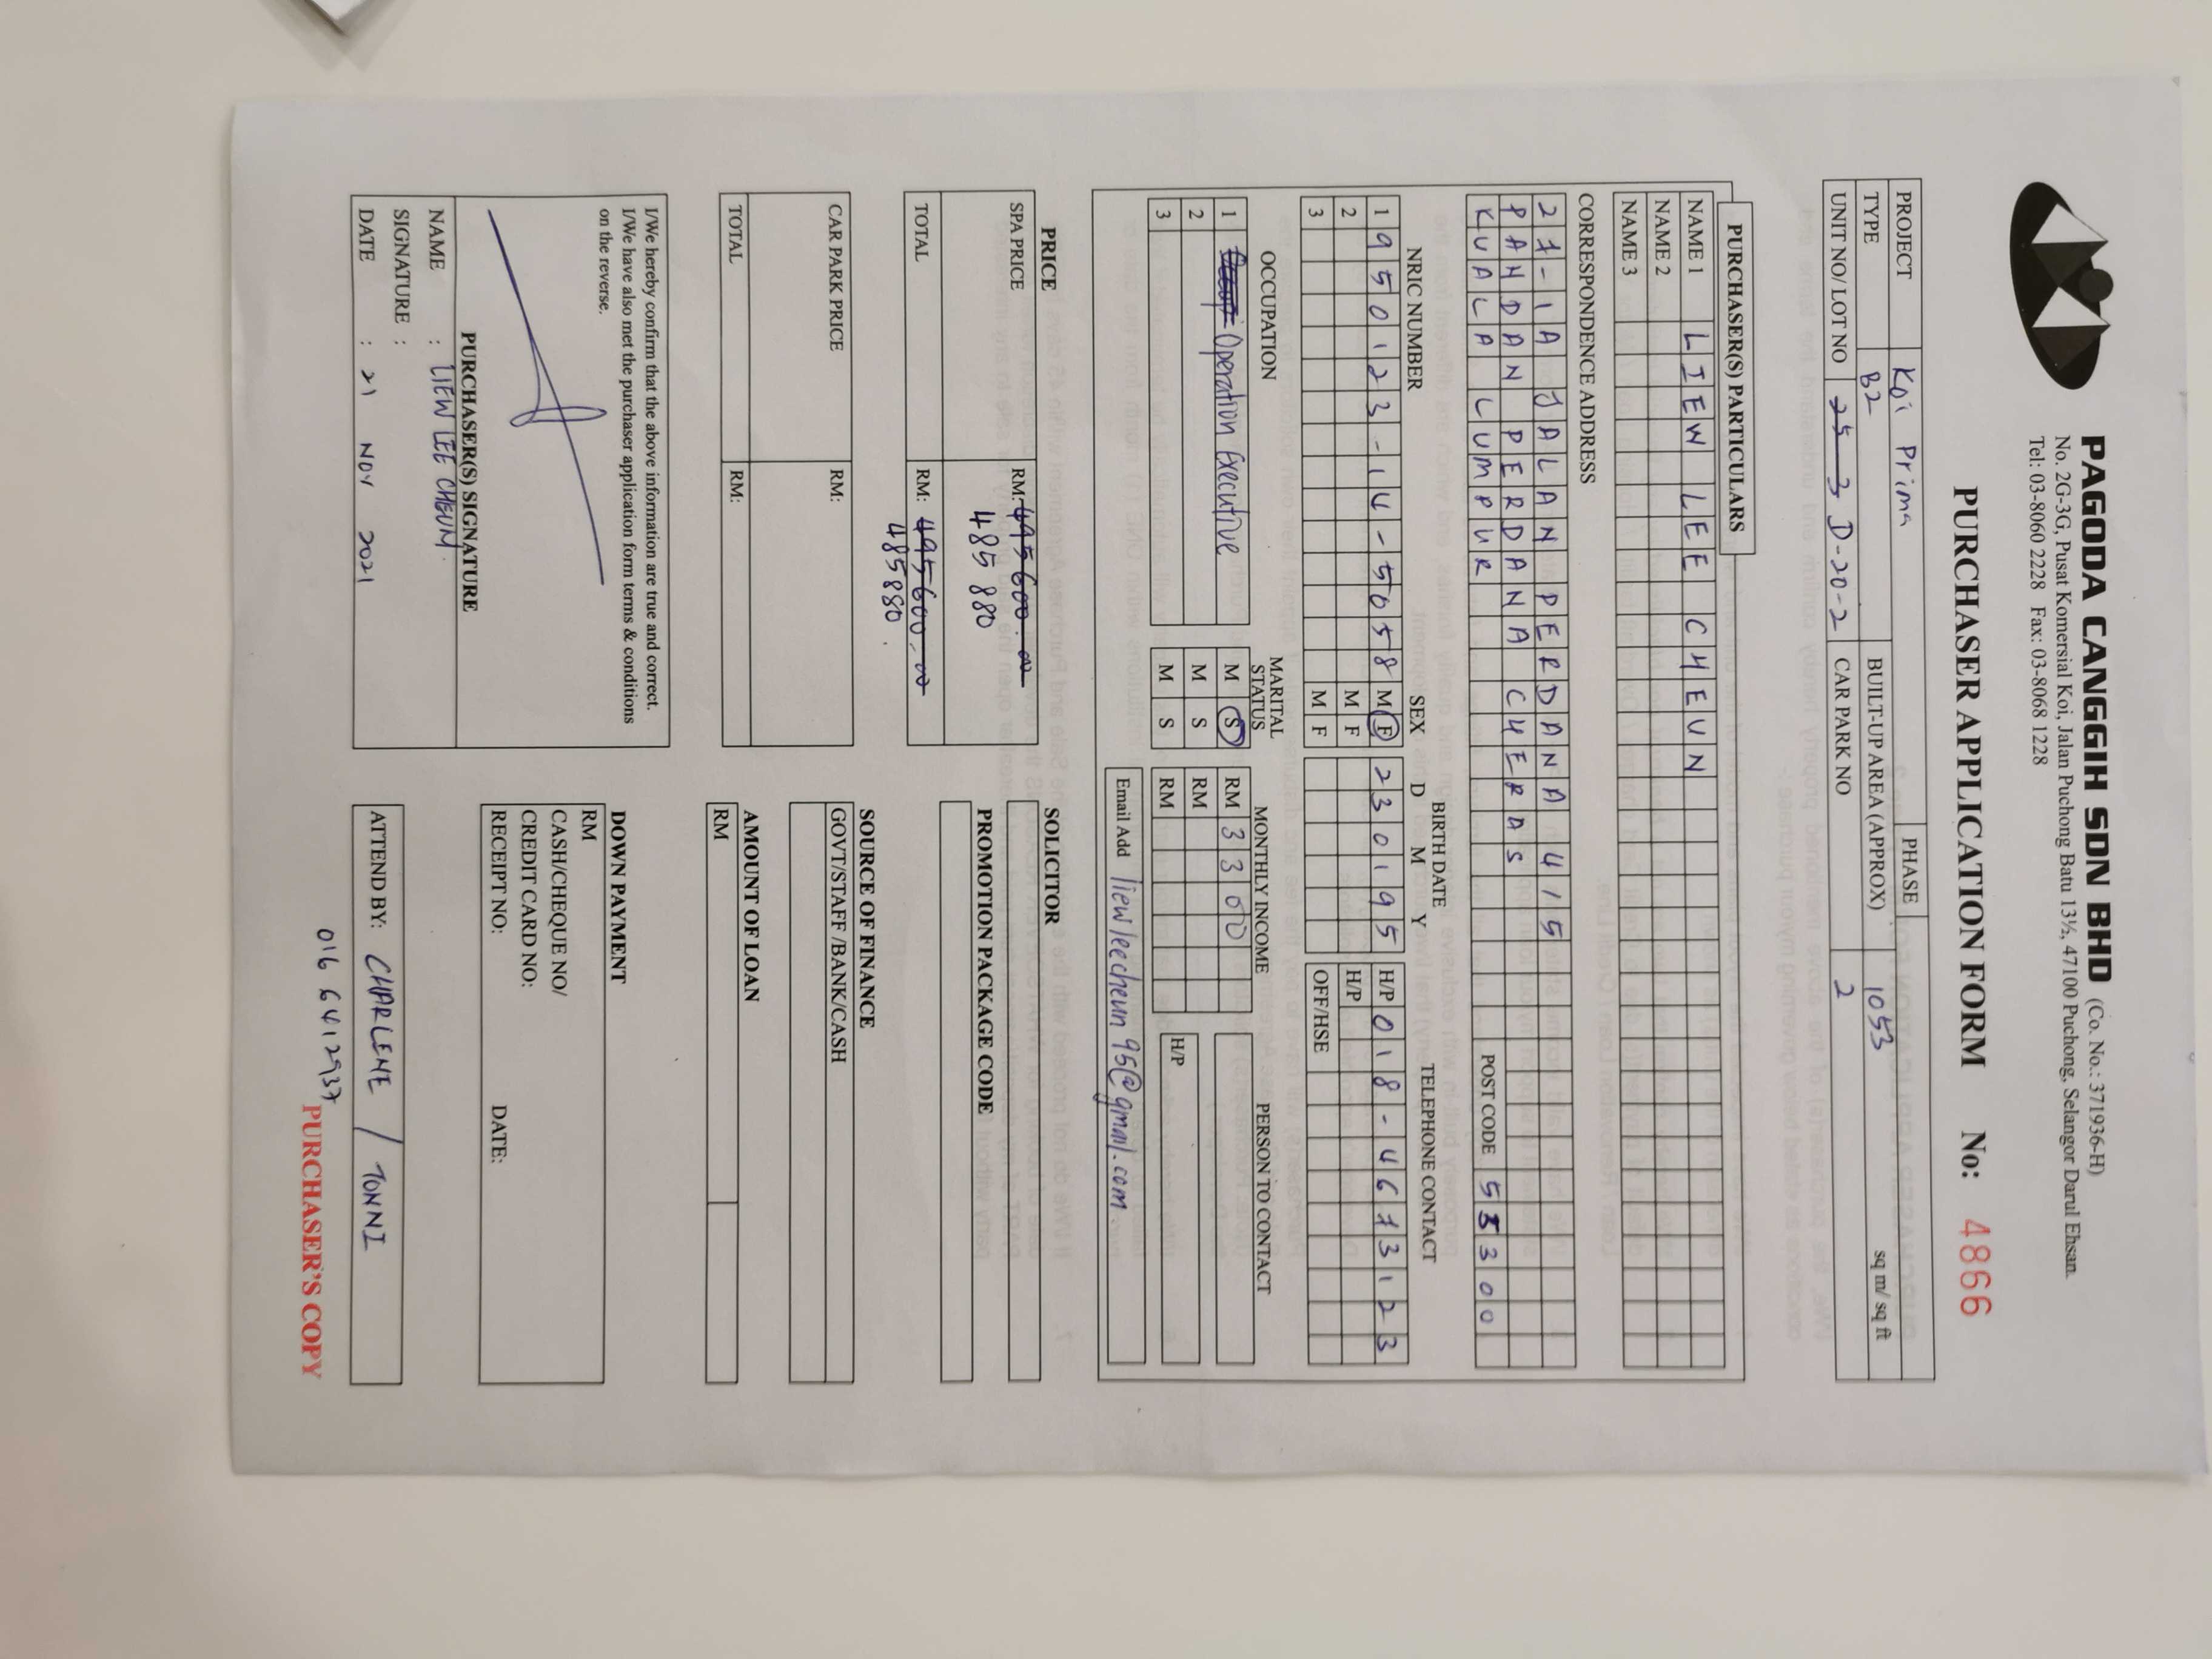 PAGODA CANGGIH SDN BHD (Co. No.: 371936-H)
No. 2G-3G, Pusat Komersial Koi, Jalan Puchong Batu 13½, 47100 Puchong, Selangor Darul Ehsan.
Tel: 03-8060 2228 Fax: 03-8068 1228
PURCHASER APPLICATION FORM No: 4866
PROJECT Koi Prima PHASE
TYPE B2 BUILT-UP AREA (APPROX) 1053 sq m/ sq ft
UNIT NO/ LOT NO D-20-2 CAR PARK NO 2
PURCHASER(S) PARTICULARS
NAME 1 LIEW LEE CHEUN
NAME 2
NAME 3
CORRESPONDENCE ADDRESS
27-1A JALAN PERDANA 4/15
PANDAN PERDANA CHERAS
KUALA LUMPUR POST CODE 55300
NRIC NUMBER SEX BIRTH DATE TELEPHONE CONTACT
D M Y
1 950123-14-5058 M F 230195 H/P 018-4673123
2 M F H/P
3 M F OFF/HSE
OCCUPATION MARITAL STATUS MONTHLY INCOME PERSON TO CONTACT
1 Operation Executive M S RM 3300
2 M S RM
3 M S RM H/P
Email Add liewleecheun95@gmail.com
PRICE
SPA PRICE RM: 495600.00
485 880
TOTAL RM: 495600.00
485880.
SOLICITOR
PROMOTION PACKAGE CODE
CAR PARK PRICE RM:
TOTAL RM:
SOURCE OF FINANCE
GOVT/STAFF /BANK/CASH
AMOUNT OF LOAN
RM
I/We hereby confirm that the above information are true and correct.
I/We have also met the purchaser application form terms & conditions
on the reverse.
PURCHASER(S) SIGNATURE
NAME : LIEW LEE CHEUN
SIGNATURE :
DATE : 21 NOV 2021
DOWN PAYMENT
RM
CASH/CHEQUE NO/
CREDIT CARD NO:
RECEIPT NO: DATE:
ATTEND BY: CHARLENE / TONNI
016 6412937
PURCHASER'S COPY